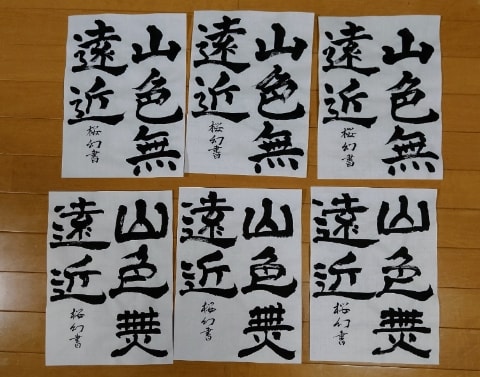 山色無
遠近
桜幻書
山色無
遠近
桜幻書
山色無
遠近
桜幻書
山色無
遠近
桜幻書
山色無
遠近
桜幻書
山色無
遠近
桜幻書